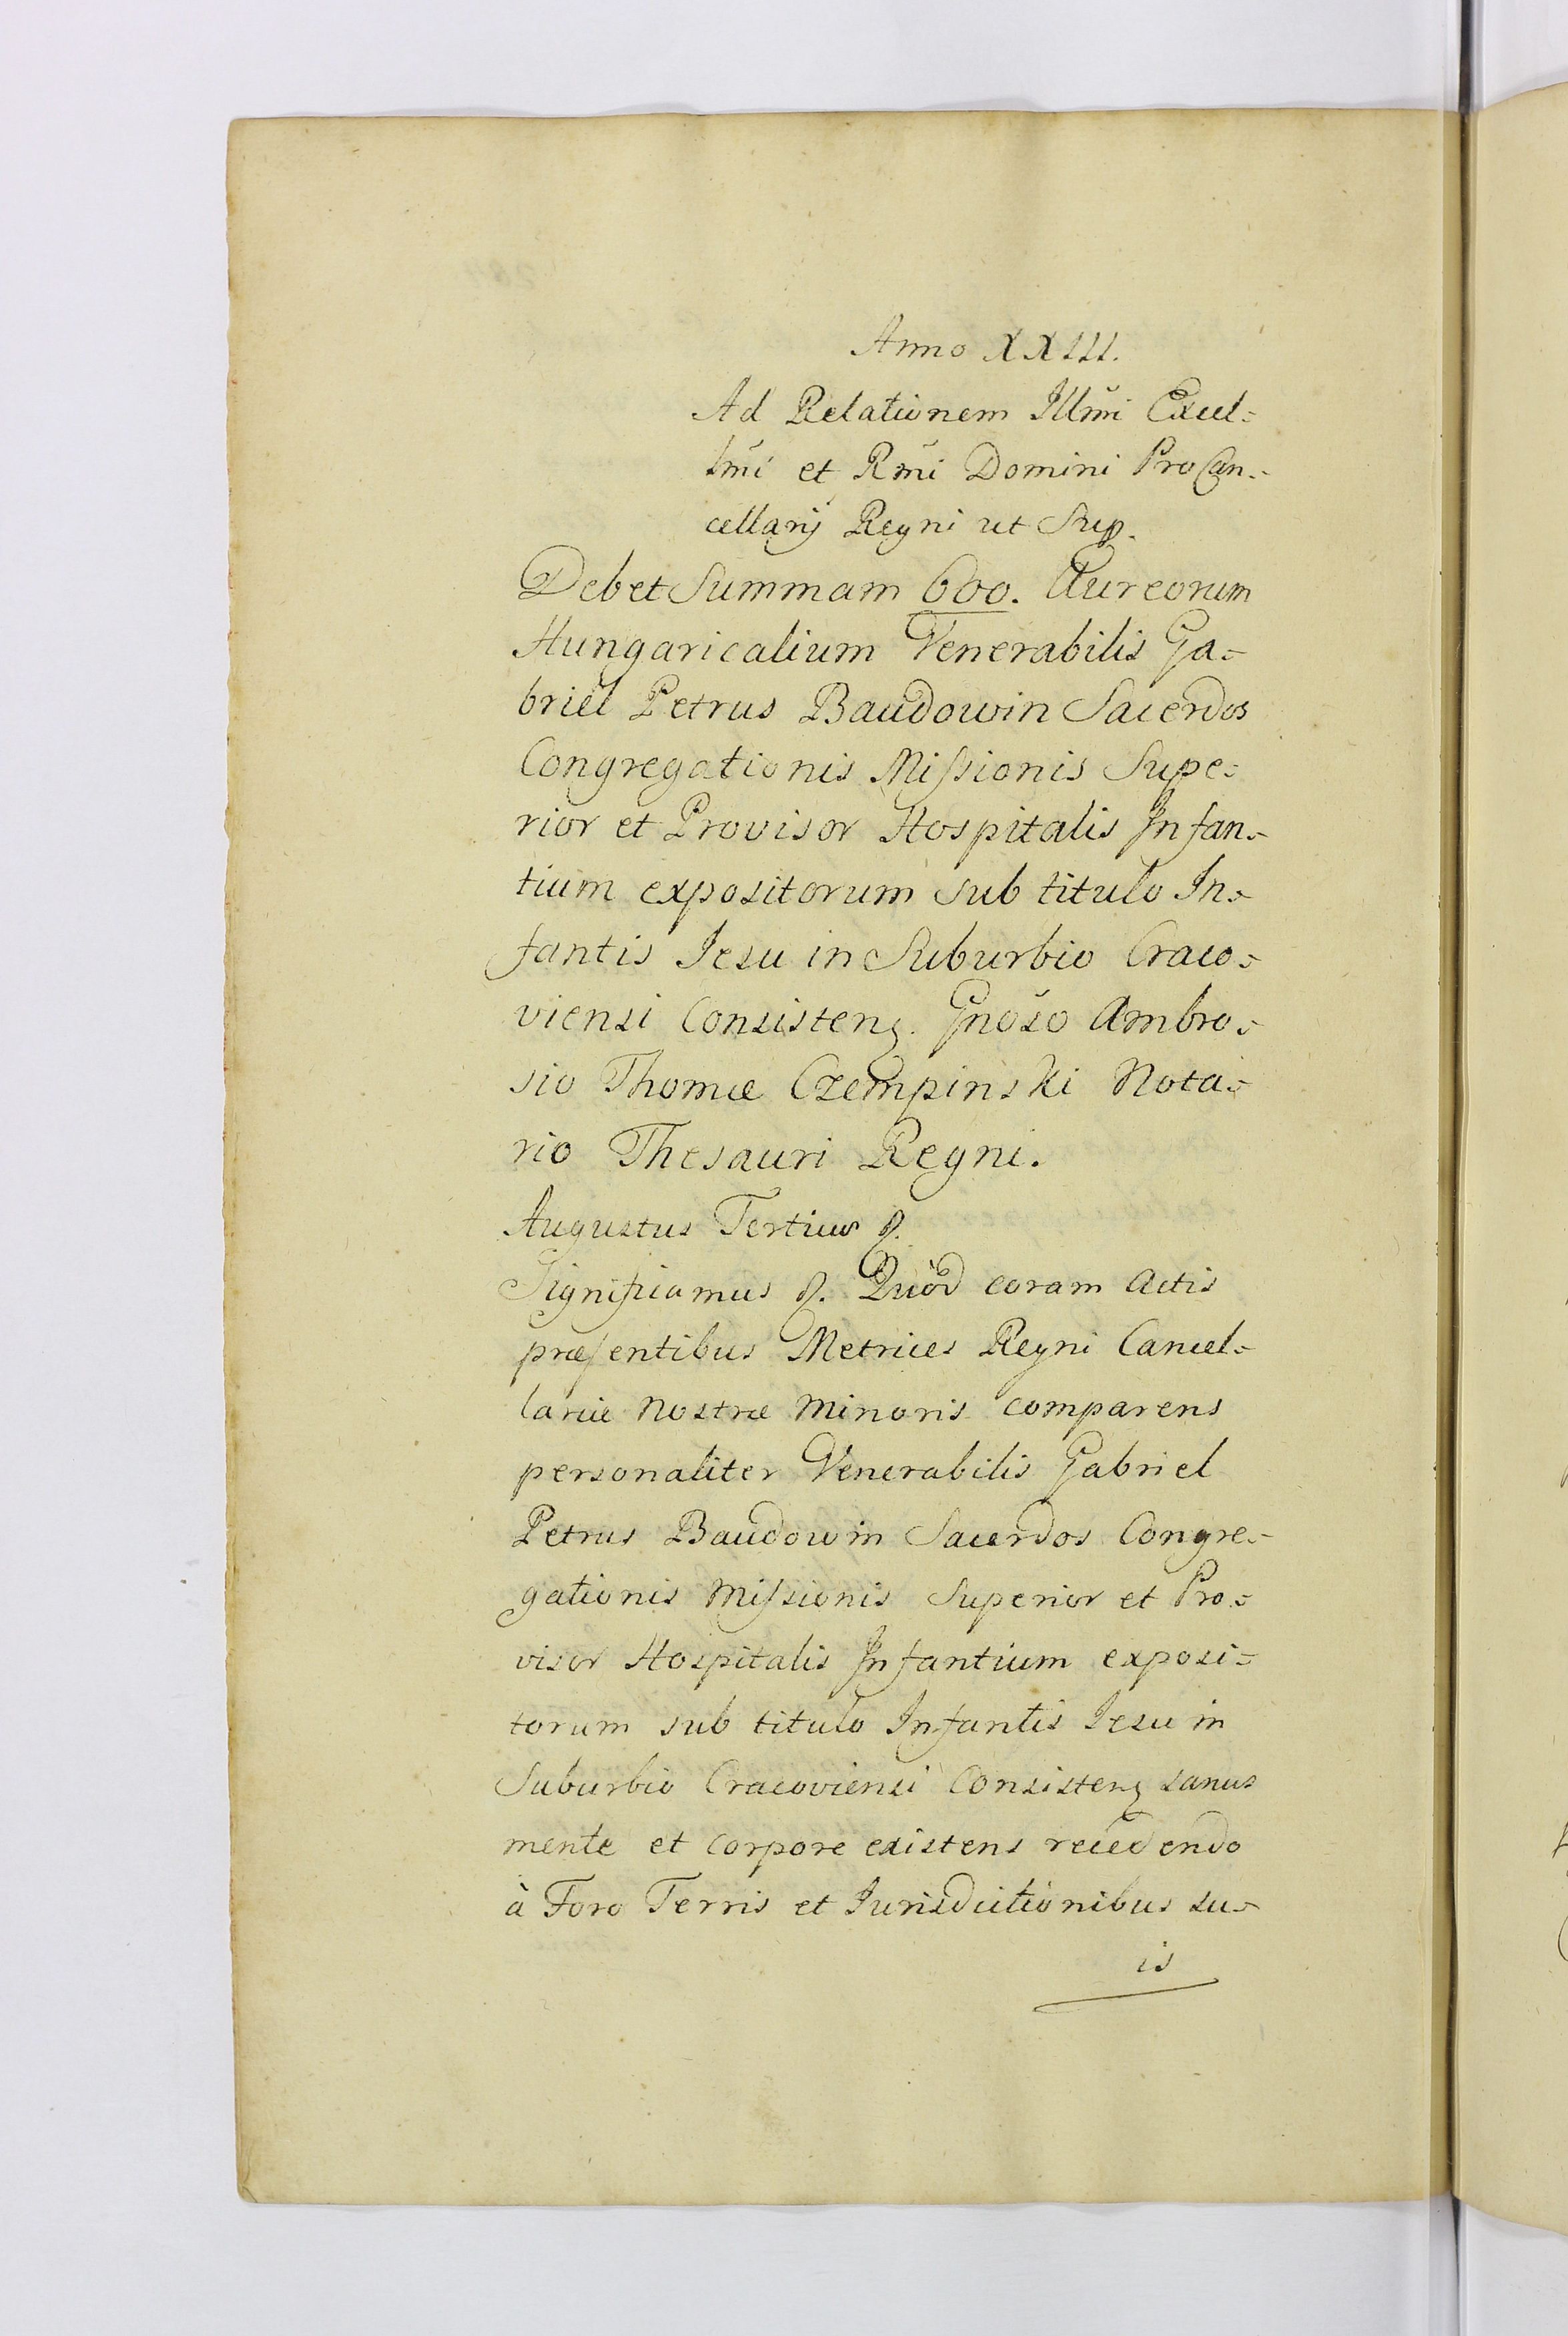 Anno XXIII.
Ad Relationem Illmi Excel=
lmi et Rmi Domini ProCan=
cellarij Regni ut Sup.
Debet Summam 600. Aureorum
Hungaricalium Venerabilis Ga=
briel Petrus Baudowin Sacerdos
Congregationis Missionis Supe=
rior et Provisor Hospitalis Infan=
tium expositorum sub titulo In=
fantis Jesu in Suburbio Craco=
viensi Consisten. Gnoso Ambro=
sio Thomæ Czempinski Nota=
rio Thesauri Regni.
Augustus Tertius &.
Significamus &. Quòd coram Actis
præsentibus Metrices Regni Cancel=
lariæ Nostræ Minoris comparens
personaliter Venerabilis Gabriel
Petrus Baudowin Sacerdos Congre=
gationis Missionis Superior et Pro=
visor Hospitalis Infantium exposi=
torum sub titulo Infantis Jesu in
Suburbio Cracoviensi Consisten sanus
mente et corpore existens recedendo
à Foro Terris et Jurisdictionibus su=
is